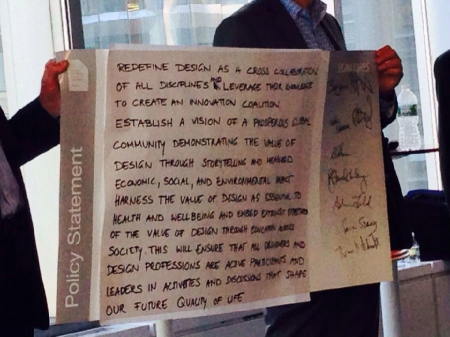 Policy Statement
REDEFINE DESIGN AS A CROSS COLLABORATION
OF ALL DISCIPLINES AND LEVERAGE THEIR
TO CREATE AN INNOVATION COALITION
ESTABLISH A VISION OF A PROSPEROUS GLOBAL
COMMUNITY DEMONSTRATING THE VALUE OF
DESIGN THROUGH STORYTELLING AND MEASURED
ECONOMIC, SOCIAL, AND ENVIRONMENTAL IMPACT
HARNESS THE VALUE OF DESIGN AS ESSENTIAL TO
HEALTH AND WELLBEING AND EMBED
OF THE VALUE OF DESIGN THROUGH EDUCATION ACROSS
SOCIETY. THIS WILL ENSURE THAT ALL DESIGNERS AND
DESIGN PROFESSIONS ARE ACTIVE PARTICIPANTS AND
LEADERS IN ACTIVITIES AND DISCUSSIONS THAT SHAPE
OUR FUTURE QUALITY OF LIFE